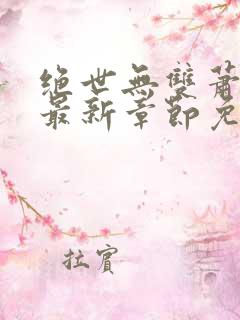 絕世無雙蕭
最新章節免
拉賓